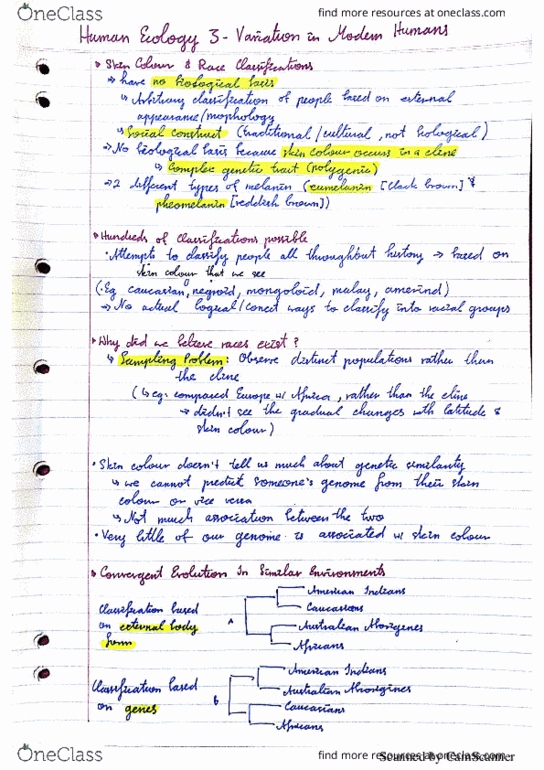 OneClass
find more resources at oneclass.com
find more resources at oneclass.com
Human Ecology 3 - Variation in Modern Humans
Skin Colour & Race Classifications
→ have no biological basis
↳ Arbitrary classification of people based on external
appearance/mophology
↳ Social construct (traditional/cultural, not biological)
→ No biological basis because skin colour occurs in a cline
↳ Complex genetic trait (polygenic)
→ 2 different types of melanin (eumelanin [black brown] &
pheomelanin [reddish brown])
Hundreds of Classifications possible
· Attempts to classify people all throughout history → based on
skin colour that we see
(· Eg caucasian, negroid, mongoloid, malay, amerind)
→ No actual logical/correct ways to classify into racial groups
Why did we believe races exist?
↳ Sampling Problem: Observe distinct populations rather than
the cline
(↳ eg: compared Europe w/ Africa, rather than the cline
→ didn't see the gradual changes with latitude &
skin colour)
· Skin colour doesn't tell us much about genetic similarity
↳ we cannot predict someone's genome from their skin
colour or vice versa
↳ Not much association between the two
· Very little of our genome is associated w/ skin colour
Convergent Evolution In Similar Environments
Classification based
on external body
form
A
American Indians
Caucasians
Australian Aborigenes
Africans
Classification based
on genes
B
American Indians
Australian Aborigines
Caucasians
Africans
OneClass
find more resources at oneclass.com
Scanned by CamScanner